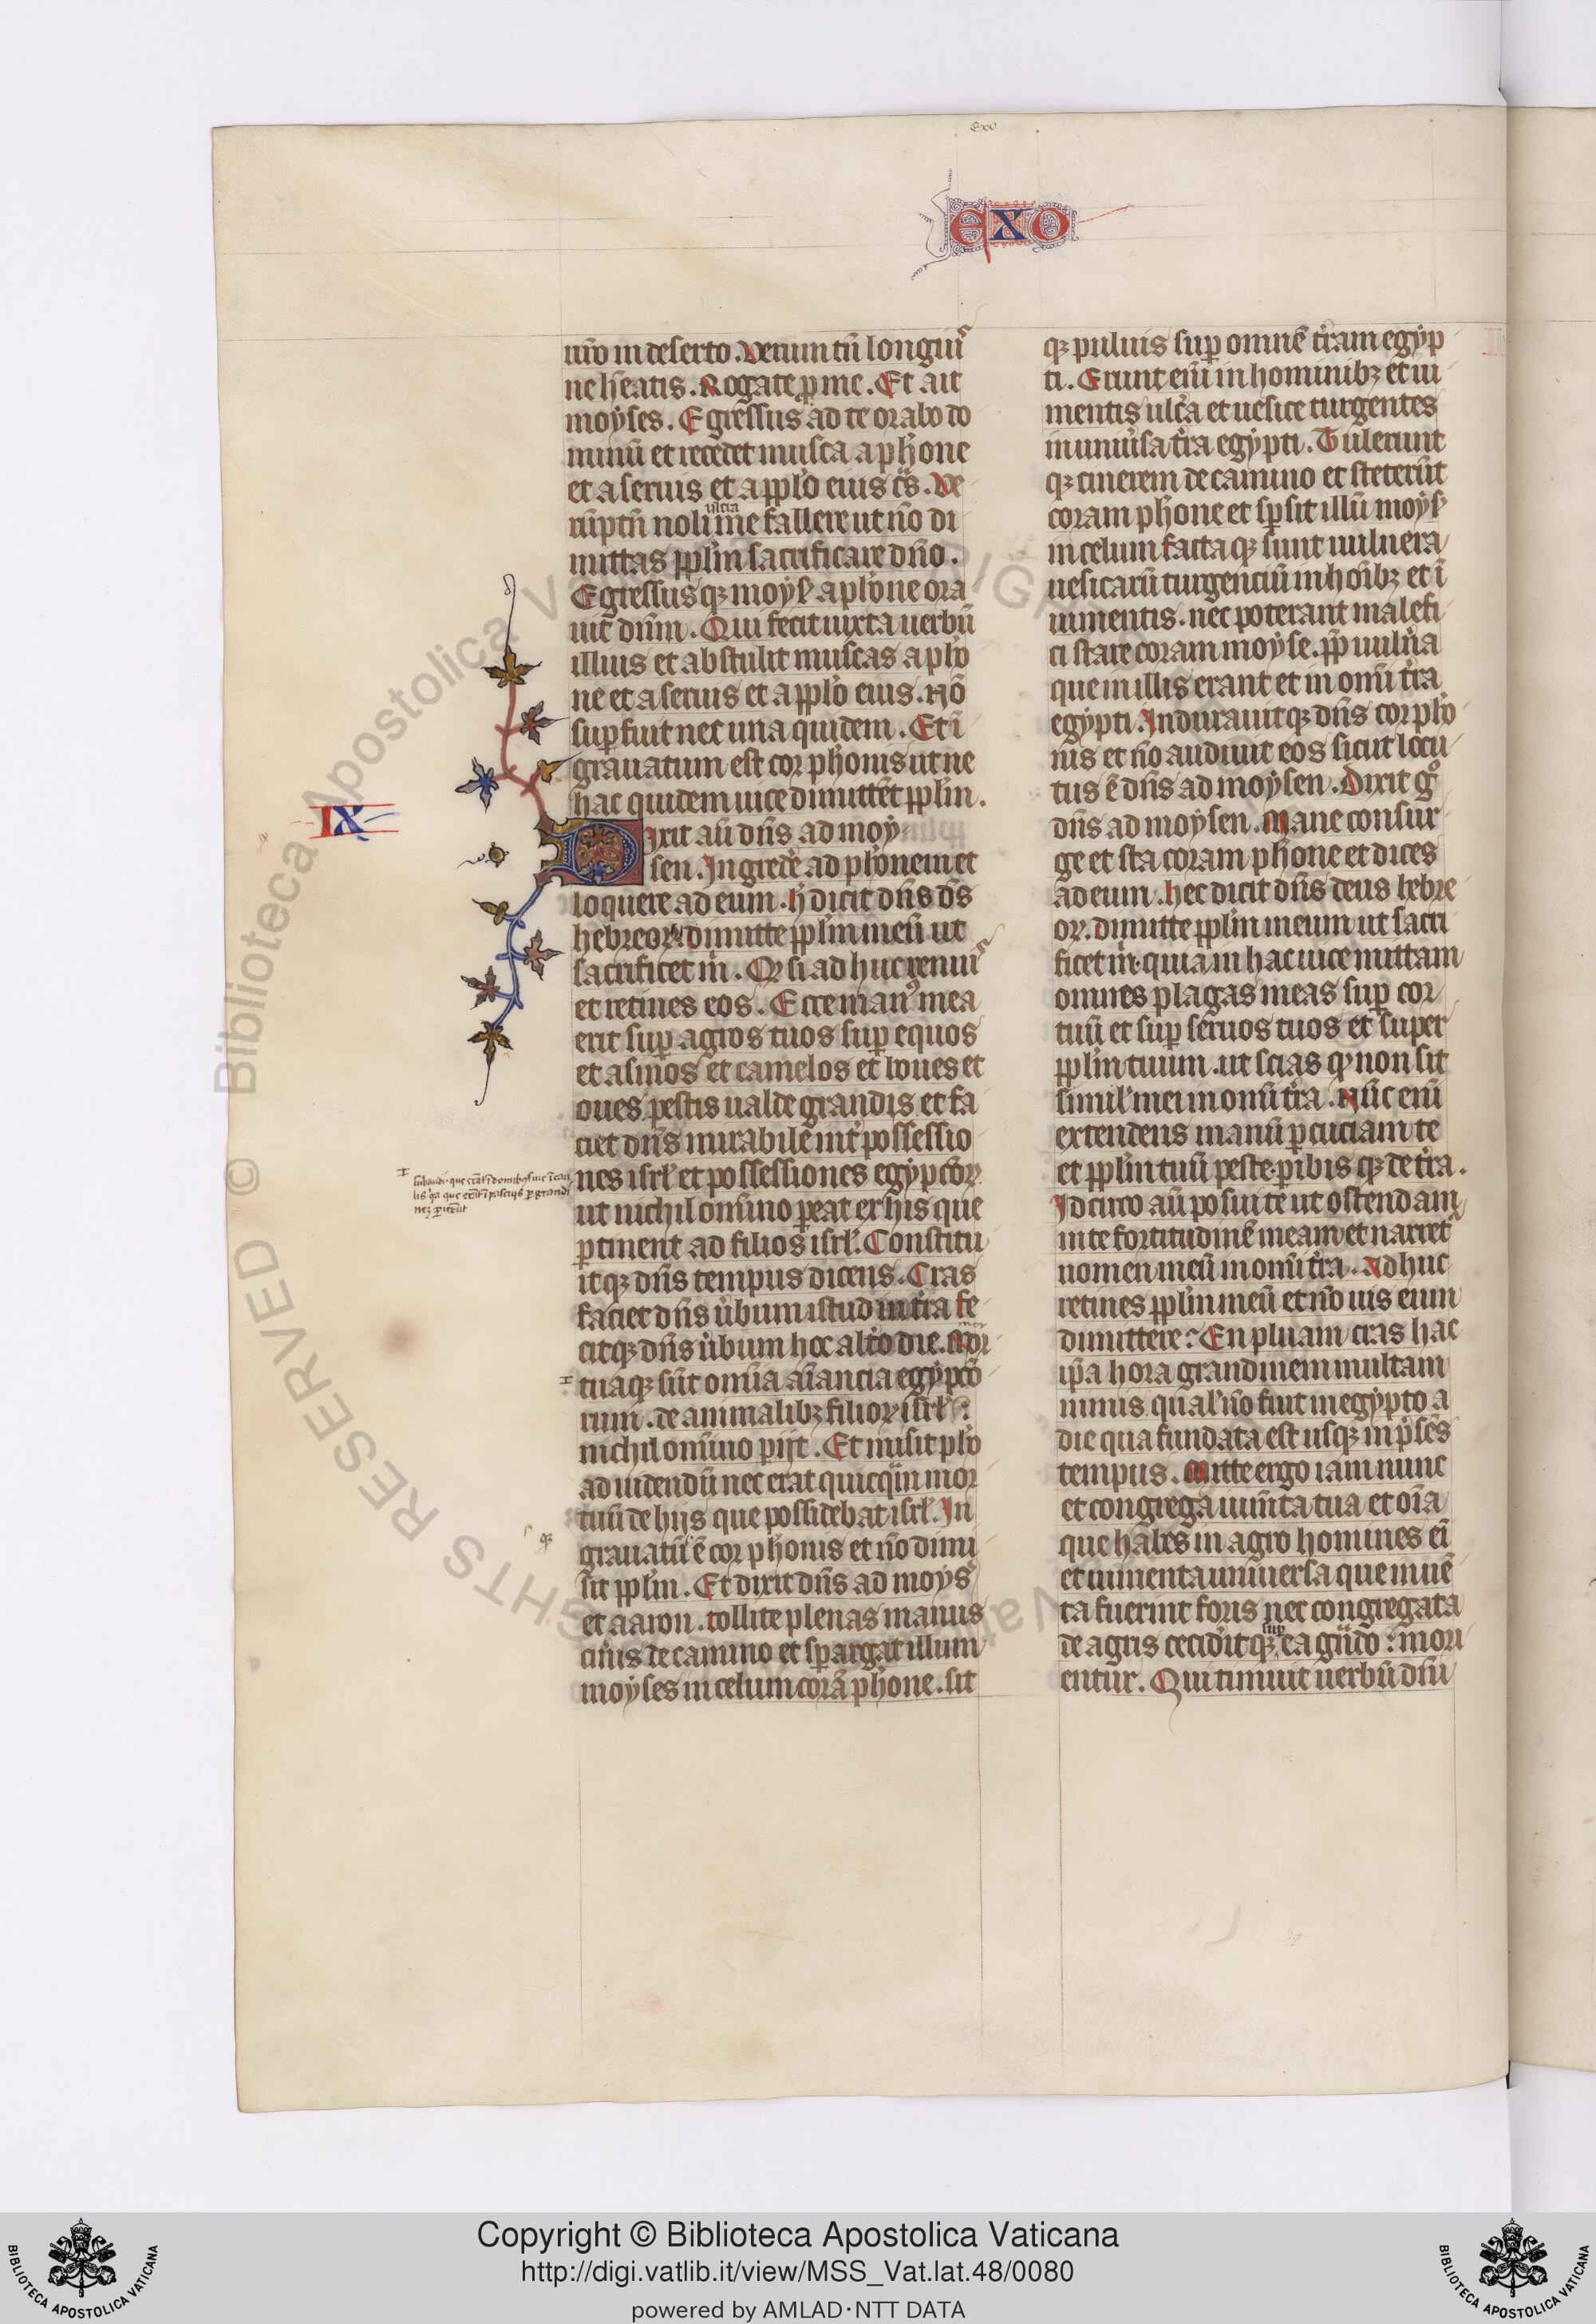 Exo
EXO
ur̄o in deserto. Verum tn̄ longiꝰ
ne h̄eatis. Rogate ꝓ me. Et ait
moyses. Egressus ad te orabo do
minū et recedet musca a ph̄one
et a seruis et a pp̄lo eius cͣs. Ve
rūptn̄ noli me fallere ut nō di
mittas pp̄lm sacrificare dn̄o.
Egressusqꝫ moyſ a ph̄one ora
uit dn̄m. Qui fecit iuxta uerbū
illius et abstulit muscas a ph̄o
ne et a seruis et a pp̄lo eius. Nō
suꝑfuit nec una quidem. Et ī
grauatum est cor ph̄onis ut ne
hac quidem uice dimittēt pp̄lm.
IX
Dixit aū dn̄s ad moy
sen. Ingrede ad ph̄onem et
loquere ad eum. h̄ dicit dn̄s ds̄
hebreoꝝ dimitte pp̄lm meū ut
sacrificet m̄. Qꝛ si ad huc renuiꝰ
et retines eos. Ecce manꝰ mea
erit suꝑ agros tuos suꝑ equos
et asinos et camelos et boues et
oues pestis ualde grandis et fa
ciet dn̄s mirabile int̄ possessio
nes isrl̄ et possessiones egypcōꝝ
ut nichil om̄ino ꝑeat ex his que
ꝑtinent ad filios isrl̄. Constitu
itqꝫ dn̄s tempus dicens. Cras
faciet dn̄s ūbum istud in t̄ra fe
citqꝫ dn̄s ūbum hoc alt̄o die. Mor
tuaqꝫ sūt om̄ia aīancia egypcō
rum. de animalibꝫ filioꝝ isrl̄:
nichil om̄ino ꝑijt. Et misit ph̄o
ad uidendū nec erat quicqͣm mor
tuū de hijs que possidebat isrl̄. In
grauatū ē cor ph̄onis et nō dimi
sit pp̄lm. Et dixit dn̄s ad moysꝰ
et aaron. tollite plenas manus
cin̄is de camino et spargat illum
moyses in celum corā ph̄one. sit
qꝫ puluis suꝑ omnē t̄ram egyp
ti. Erunt eni in hominibꝫ et iu
mentis ulc̄a et uesice turgentes
in uniūsa t̄ra egypti. Tulerunt
qꝫ cinerem de camino et steterūt
coram ph̄one et sꝑsit illū moyſ
in celum facta qꝫ sunt uulnera
uesicarū turgenciū in hoībꝫ et ī
iumentis. nec poterant malefi
ci stare coram moyse. ꝓp̄ uuln̄a
que in illis erant et in om̄i t̄ra
egypti. Indurauitqꝫ dn̄s cor ph̄o
nis et nō audiuit eos sicut locu
tus ē dn̄s ad moysen. Dixit gͦ
dn̄s ad moysen. Mane consur
ge et sta coram ph̄one et dices
ad eum. hec dicit dn̄s deus hebre
oꝝ. dimitte pp̄lm meum ut sacri
ficet m̄. quia in hac uice mittam
omnes plagas meas suꝑ cor
tuū et suꝑ seruos tuos et super
pp̄lm tuum. ut scias ꝙ non sit
simil̄ mei in om̄i t̄ra. Nūc eni
extendens manū ꝑcuciam te
et pp̄lm tuū peste. ꝑibis qꝫ de t̄ra.
Idcirco aū posui te ut ostendam
in te fortitudinē meam et narret̄
nomen meū in om̄i t̄ra. Adhuc
retines pp̄lm meū et nō uis eum
dimittere? En pluam cras hac
ip̄a hora grandinem multam
nimis qual̄ nō fuit in egypto a
die qua fundata est usqꝫ in p̄sēs
tempus. Mitte ergo iam nunc
et congrega ium̄ta tua et oīa
que habes in agro homines ei
et iumenta uniuersa que inuē
ta fuerint foris nec congregata
de agris ceciditqꝫ sup ea gͣndo: mori
entur. Qui timuit uerbū dn̄i
Copyright © Biblioteca Apostolica Vaticana
http://digi.vatlib.it/view/MSS_Vat.lat.48/0080
powered by AMLAD·NTT DATA
BIBLIOTECA APOSTOLICA VATICANA
BIBLIOTECA APOSTOLICA VATICANA